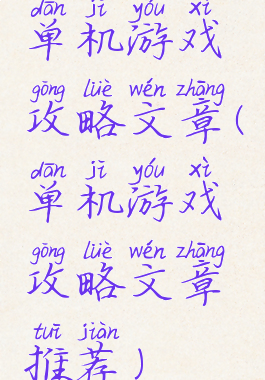 dān jī yóu xì
单机游戏
gōng lüè wén zhāng
攻略文章(
dān jī yóu xì
单机游戏
gōng lüè wén zhāng
攻略文章
tuī jiàn
推荐)